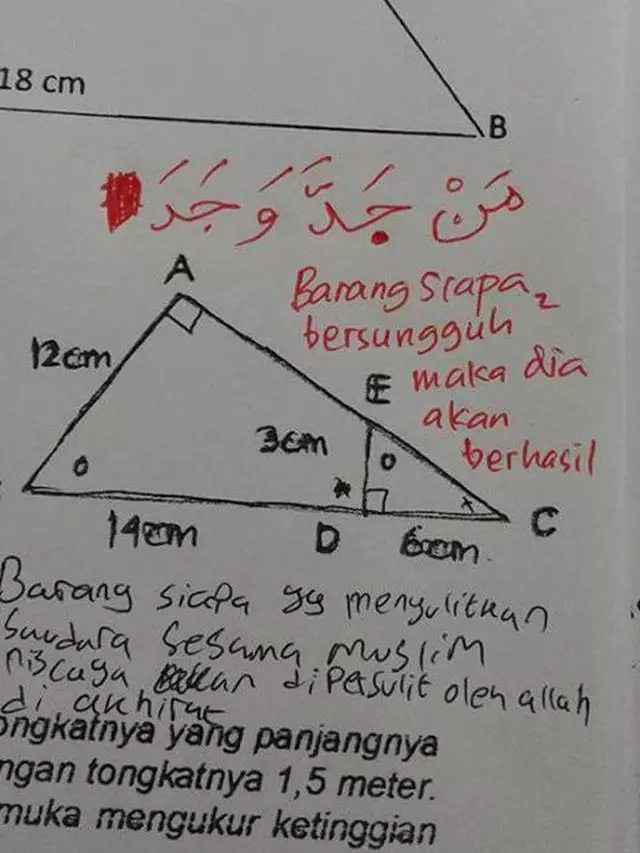 18 cm
B
مَنْ جَدَّ وَجَدَ
A
Barang siapa2
bersungguh
12cm
maka dia
E
akan
3cm
berhasil
o
o
x
C
14cm
D
6cm.
Barang siapa yg menyulitkan
Saudara Sesama muslim
niscaya akan dipersulit oleh allah
di akhirat
ongkatnya yang panjangnya
ngan tongkatnya 1,5 meter.
muka mengukur ketinggian